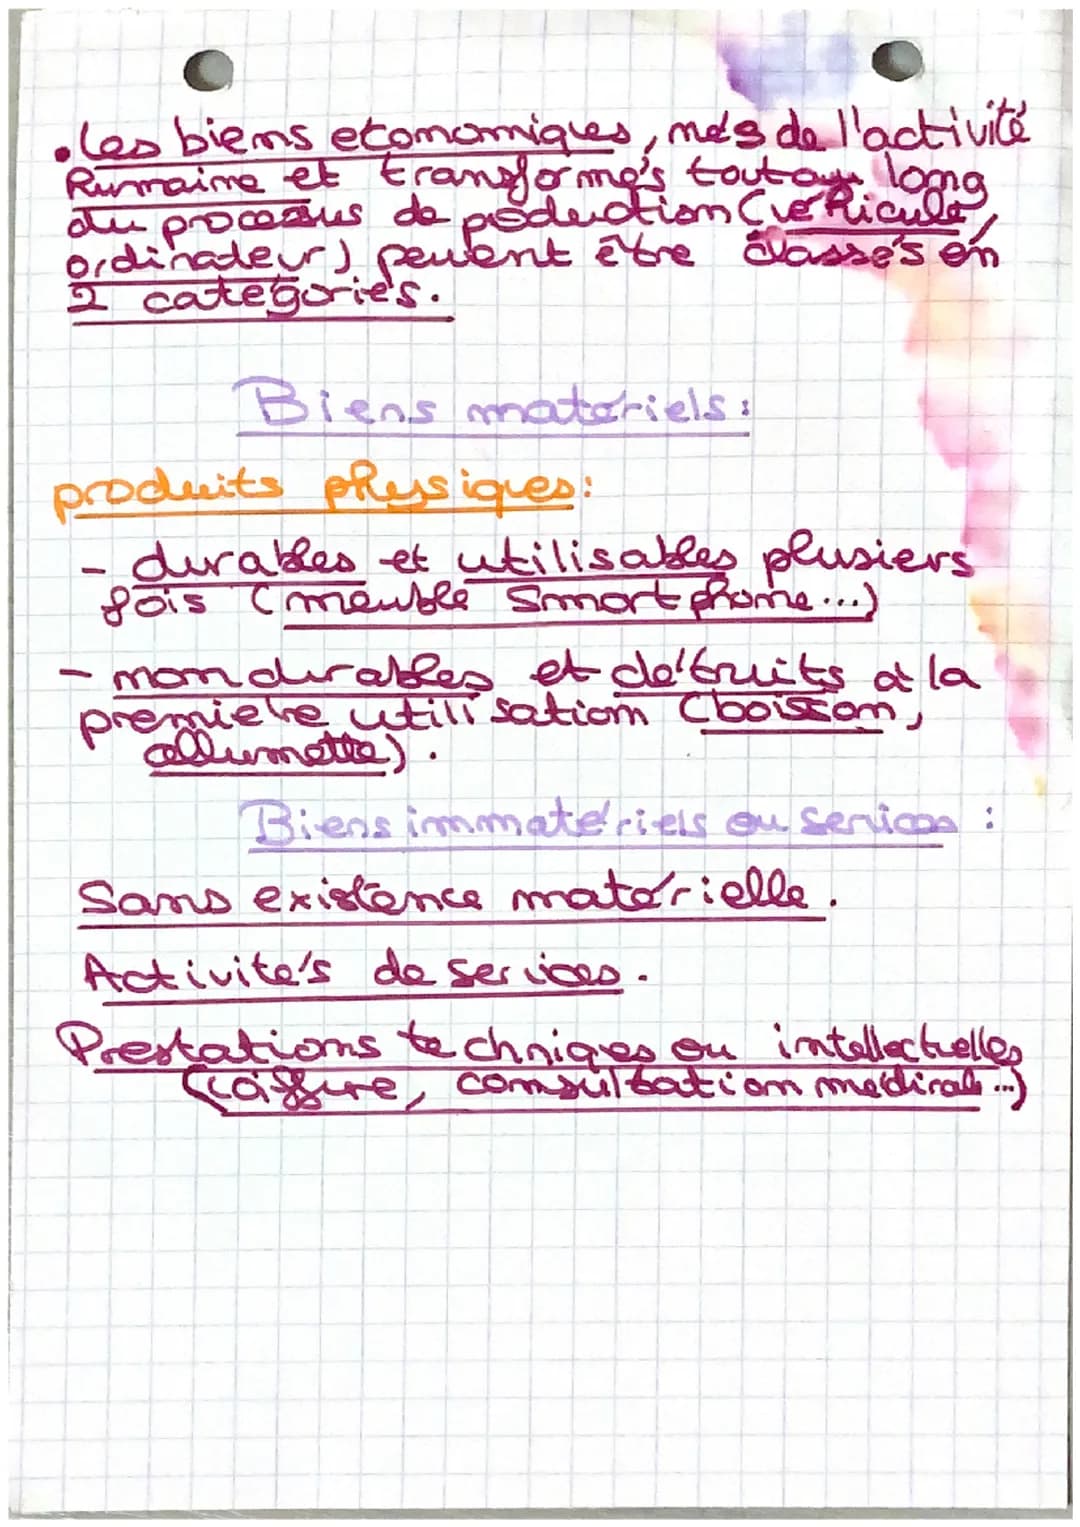 • Les biens economiques, nés de l'activité
humaine et transformés tout au long
du processus de production (véhicule,
ordinateur) peuvent être classés en
2 catégories.
Biens matériels :
produits physiques :
- durables et utilisables plusiers
fois (meuble Smartphone...)
- non durables et détruits à la
première utilisation (boisson,
allumette).
Biens immatériels ou services :
Sans existence matérielle.
Activités de services.
Prestations techniques ou intellectuelles
(coiffure, consultation médicale...)